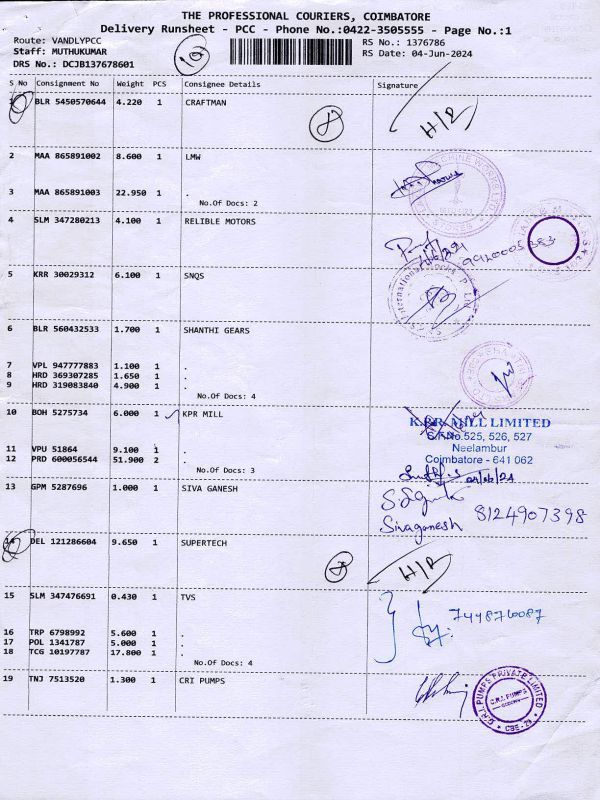 THE PROFESSIONAL COURIERS, COIMBATORE
Delivery Runsheet - PCC - Phone No.:0422-3505555 - Page No.:1
Route: VANDLYPCC RS No.: 1376786
Staff: MUTHUKUMAR RS Date: 04-Jun-2024
DRS No.: DCJB137678601
S No Consignment No Weight PCS Consignee Details Signature
1 BLR 5450570644 4.220 1 CRAFTMAN
2 MAA 865891002 8.600 1 LMW
3 MAA 865891003 22.950 1 .
No.Of Docs: 2
4 SLM 347280213 4.100 1 RELIBLE MOTORS
5 KRR 30029312 6.100 1 SNQS
6 BLR 560432533 1.700 1 SHANTHI GEARS
7 VPL 947777883 1.100 1 .
8 HRD 369307285 1.650 1 .
9 HRD 319083840 4.900 1 .
No.Of Docs: 4
10 BOH 5275734 6.000 1 KPR MILL
K.P.R. MILL LIMITED
S.F.No.525, 526, 527
Neelambur
Coimbatore - 641 062
11 VPU 51864 9.100 1 .
12 PRD 600056544 51.900 2 .
No.Of Docs: 3
13 GPM 5287696 1.000 1 SIVA GANESH
Sivaganesh 8124907398
14 DEL 121286604 9.650 1 SUPERTECH
15 SLM 347476691 0.430 1 TVS
7448760087
16 TRP 6798992 5.600 1 .
17 POL 1341787 5.000 1 .
18 TCG 10197787 17.800 1 .
No.Of Docs: 4
19 TNJ 7513520 1.300 1 CRI PUMPS
C.R.I. PUMPS PRIVATE LIMITED